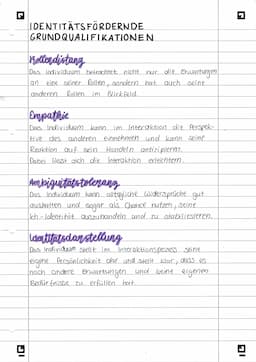 IDENTITÄTSFÖRDERNDE
GRUNDQUALIFIKATIONEN
Rollendistanz
Das Individuum betrachtet nicht nur die Erwartungen
an eine seiner Rollen, sondern hat auch seine
anderen Rollen im Blickfeld.
Empathie
Das Individuum kann im Interaktion die Perspek-
tive des anderen einnehmen und kann seine
Reaktion auf sein Handeln antizipieren.
Dabei lässt sich die Interaktion erleichtern.
Ambiguitätstoleranz
Das Individuum kann mögliche Widersprüche gut
aushalten und sogar als Chance nutzen, seine
Ich-Identität auszuhandeln und zu stabilisieren.
Identitätsdarstellung
Das Individuum stellt im Interaktionsprozess seine
eigene Persönlichkeit dar und stellt klar, dass es
noch andere Erwartungen und seine eigenen
Bedürfnisse zu erfüllen hat.